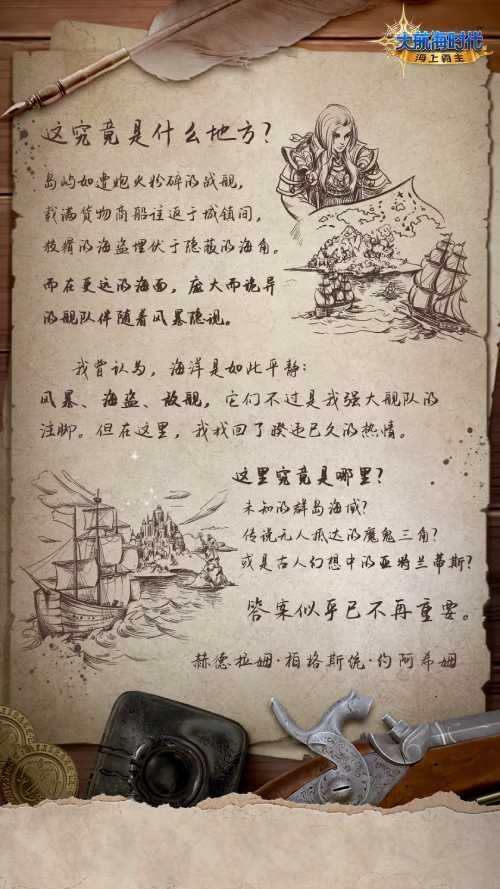 大航海时代
海上霸主
这究竟是什么地方?
岛屿如遭炮火粉碎的战舰,
载满货物商船往返于城镇间,
狡猾的海盗埋伏于隐蔽的海角。
而在更远的海面,庞大而诡异
的舰队伴随着风暴隐现。
我曾认为,海洋是如此平静:
风暴、海盗、敌舰,它们不过是我强大舰队的
注脚。但在这里,我找回了睽违已久的热情。
这里究竟是哪里?
未知的群岛海域?
传说无人抵达的魔鬼三角?
或是古人幻想中的亚特兰蒂斯?
答案似乎已不再重要。
赫德拉姆·柏格斯统·约阿希姆